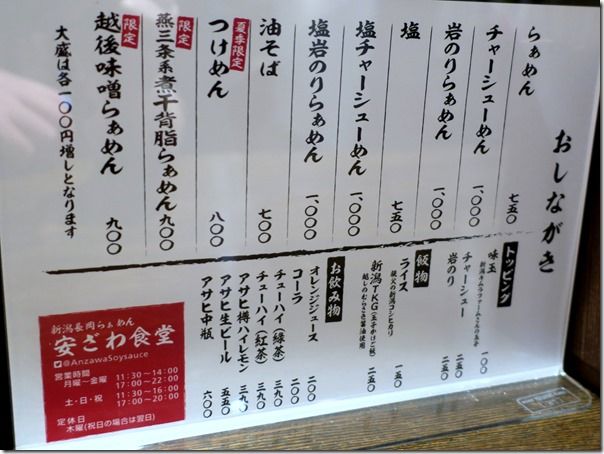 おしながき
らぁめん 七五〇
チャーシューめん 一、〇〇〇
岩のりらぁめん 一、〇〇〇
塩 七五〇
塩チャーシューめん 一、〇〇〇
塩岩のりらぁめん 一、〇〇〇
油そば 七〇〇
夏季限定
つけめん 八〇〇
限定
燕三条系煮干背脂らぁめん 九〇〇
限定
越後味噌らぁめん 九〇〇
大盛は各一〇〇円増しとなります
トッピング
味玉 一〇〇
新潟キムラファームさんの玉子
チャーシュー 二五〇
岩のり 二五〇
飯物
ライス 一五〇
親父の新潟コシヒカリ
新潟TKG(玉子かけご飯) 二五〇
越しのむらさき醤油使用
お飲み物
オレンジジュース 二〇〇
コーラ 二〇〇
チューハイ(緑茶) 三九〇
チューハイ(紅茶) 三九〇
アサヒ樽ハイレモン 三九〇
アサヒ生ビール 五五〇
アサヒ中瓶 六〇〇
新潟長岡らぁめん
安ざわ食堂
@AnzawaSoysauce
営業時間
月曜~金曜 11:30~14:00
17:00~22:00
土・日・祝 11:30~16:00
17:00~20:00
定休日
木曜(祝日の場合は翌日)